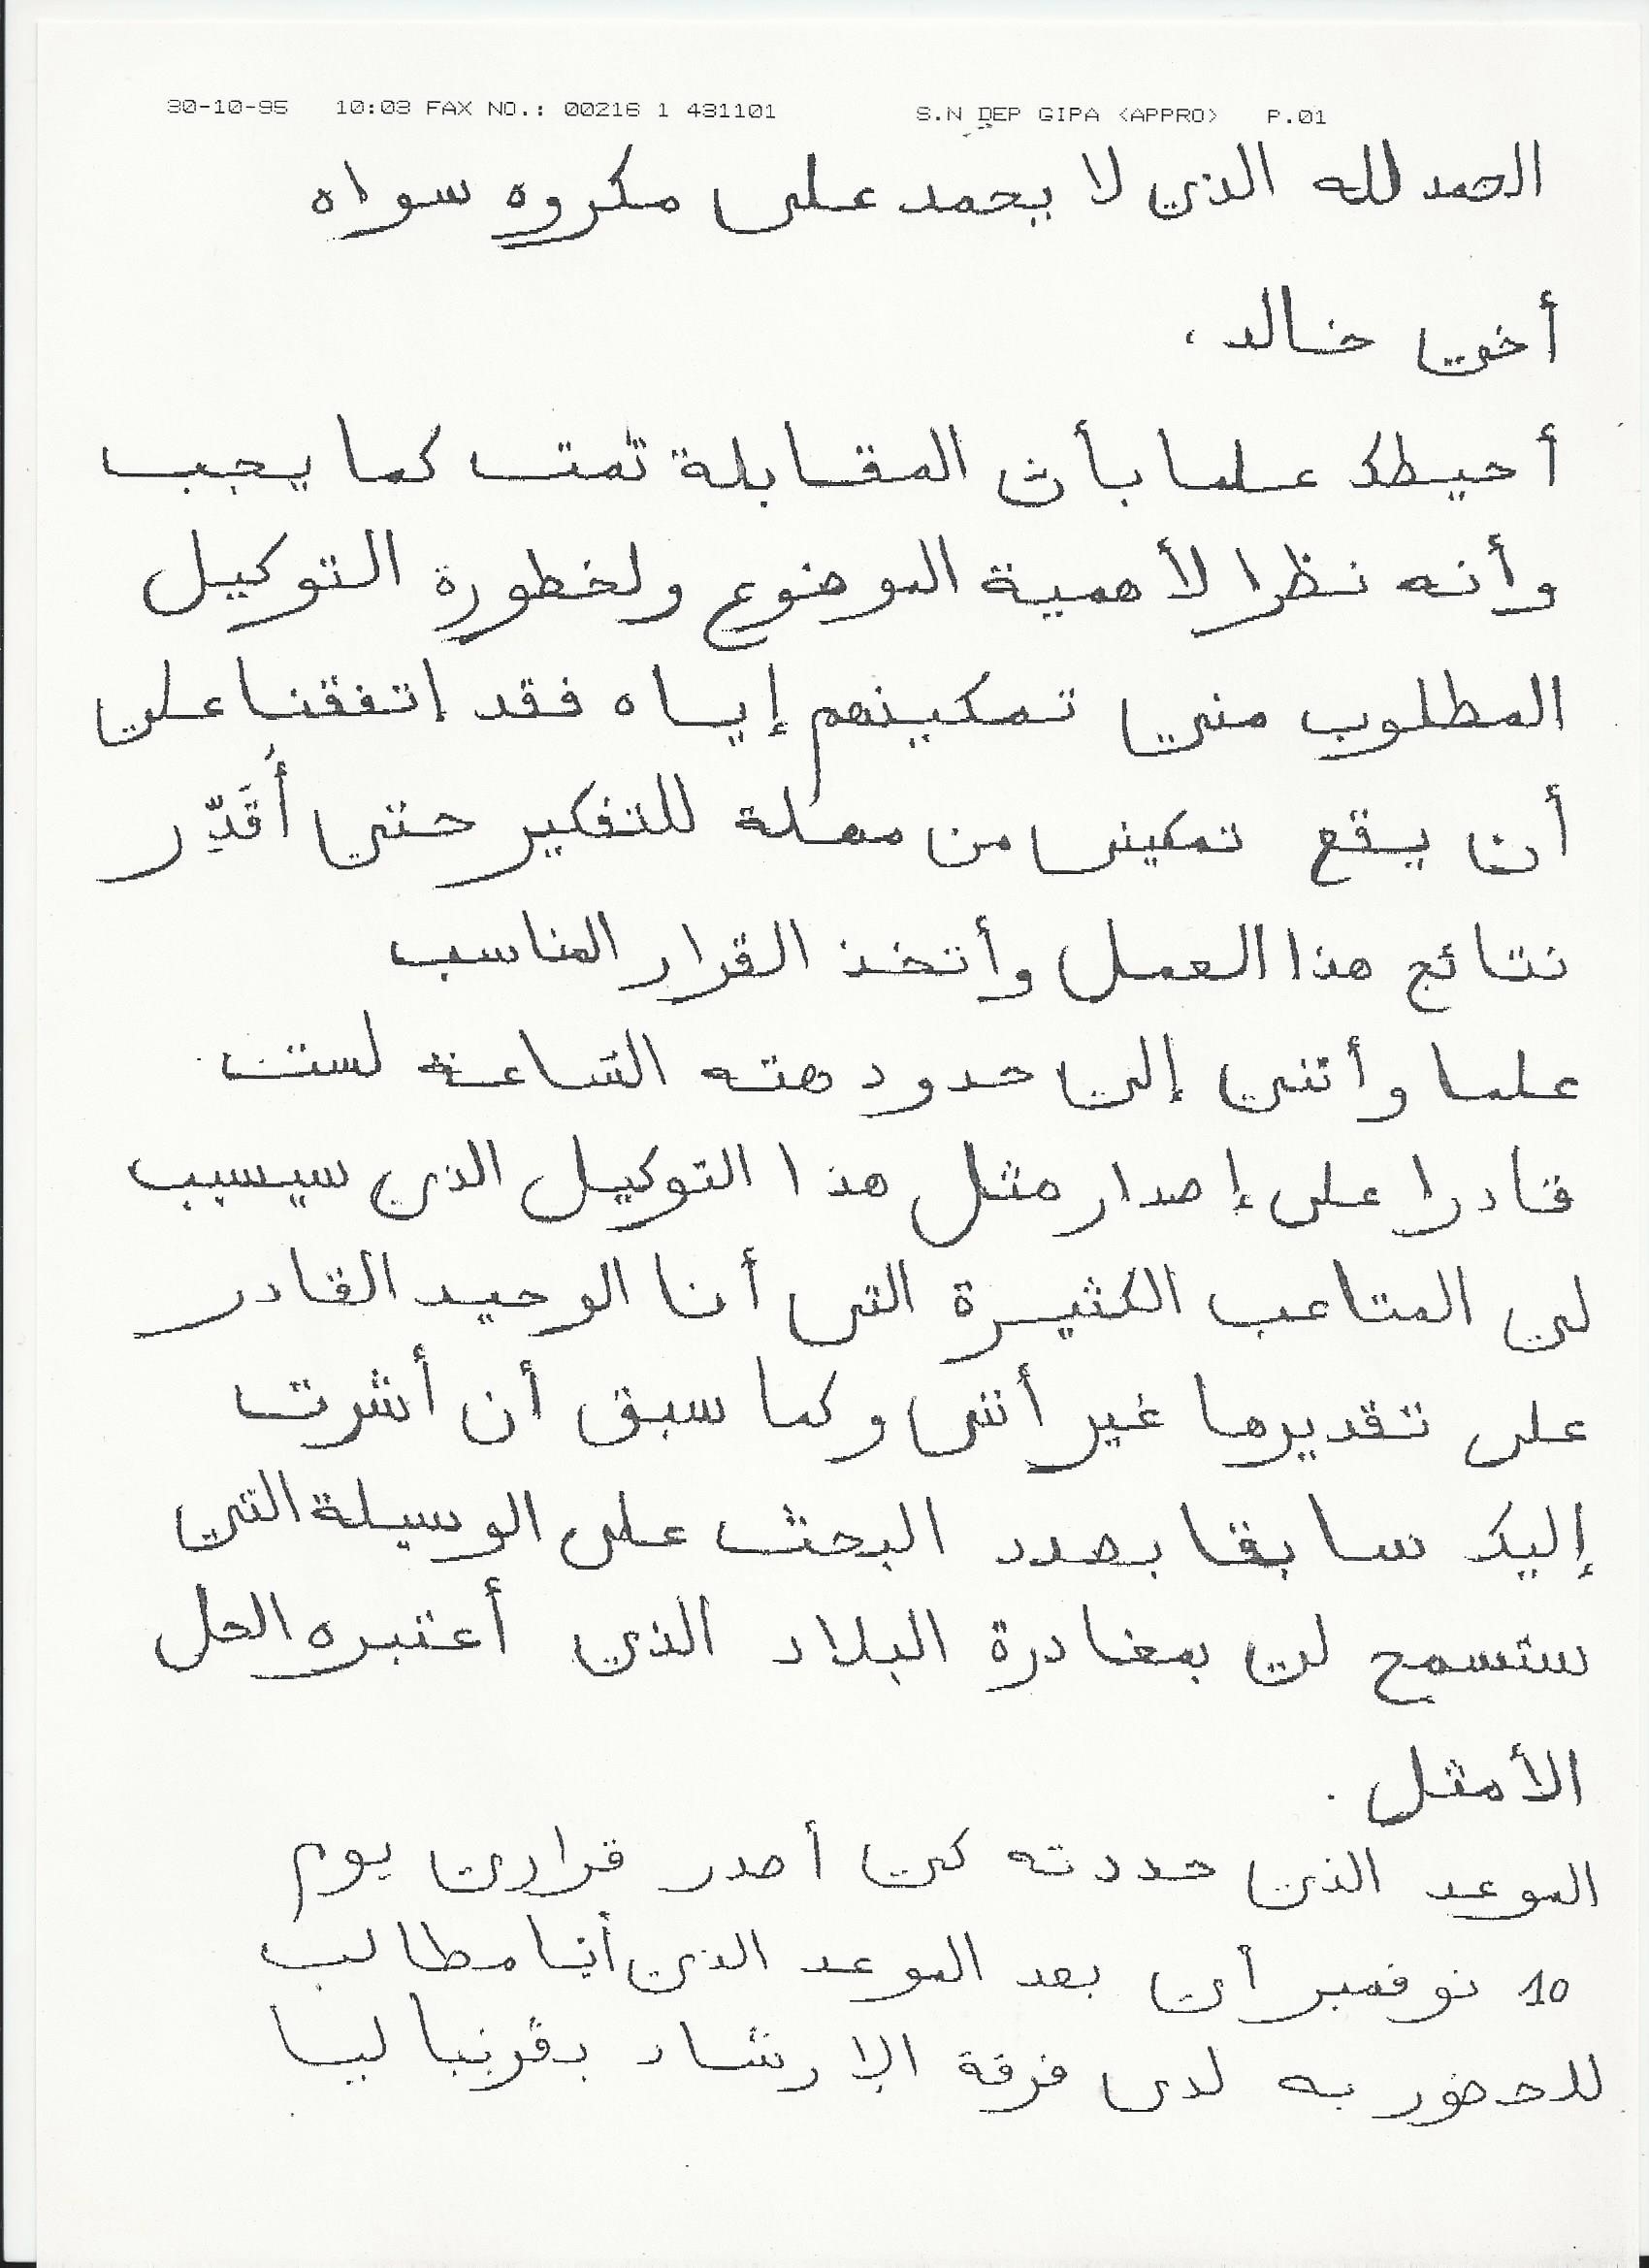 30-10-95 10:03 FAX NO.: 00216 1 431101 S.N DEP GIPA <APPRO> P.01
الحمد لله الذي لا يحمد على مكروه سواه
أخي خالد،
أحيطك علما بأن المقابلة تمت كما يجب
وأنه نظرا لأهمية الموضوع ولخطورة التوكيل
المطلوب مني تمكينهم إياه فقد اتفقنا على
أن يقع تمكيني من مهلة للتفكير حتى أُقَدِّر
نتائج هذا العمل وأتخذ القرار المناسب
علما وأنني إلى حدود هته الساعة لست
قادرا على إصدار مثل هذا التوكيل الذي سيسبب
لي المتاعب الكثيرة التي أنا الوحيد القادر
على تقديرها غير أنني وكما سبق أن أشرت
إليك سابقا بصدد البحث على الوسيلة التي
ستسمح لي بمغادرة البلاد الذي أعتبره الحل
الأمثل.
الموعد الذي حددته كي أصدر قراري يوم
10 نوفمبر أي بعد الموعد الذي أنا مطالب
للحضور به لدى فرقة الإرشاد بقرنباليا